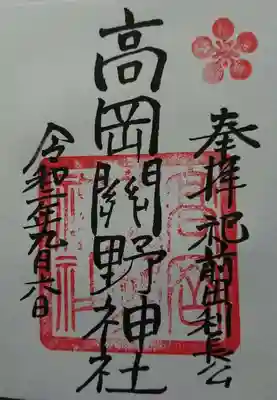 奉拝 祀前田利長公
高岡關野神社
令和二年九月六日